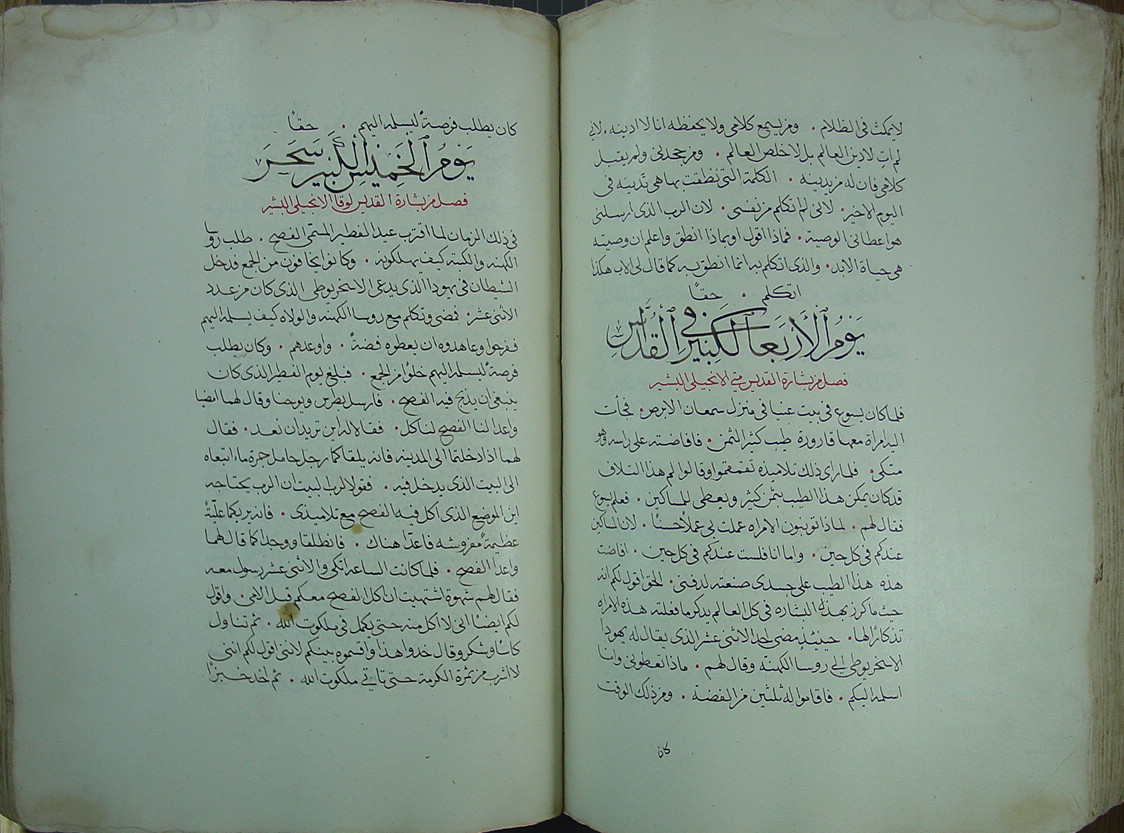 لا يمكث في الظلام . ومن يسمع كلامي ولا يحفظه انا لا ادينه ، لاني
لم ات لادين العالم بل لاخلص العالم . ومن جحدني ولم يقبل
كلامي فان له من يدينه . الكلمة التي نطقت بها هي تدينه في
اليوم الاخير . لانني لم اتكلم من نفسي . لان الرب الذي ارسلني
هو اعطاني الوصية . فماذا اقول او بماذا انطق واعلم ان وصيته
هي حياة الابد . والذي اتكلم به انما انطق به كما قال لي الاب هكذا
اتكلم . حقًا
يَومُ ٱلأَربَعَا ٱلكَبِير في ٱلقُدَّاس
فصل من بشارة القديس متي الانجيلي البشير
فلما كان يسوع في بيت عنيا في منزل سمعان الابرص . فجأت
اليه امراة معها قارورة طيب كثير الثمن . فافاضته على راسه وهو
متكي . فلما راي ذلك تلاميذه تقمقموا وقالوا لم هذا التلاف
قد كان يمكن هذا الطيب بثمن كثير ويعطي للمساكين . فعلم يسوع
فقال لهم . لماذا توبنون الامراه عملت بي عملا حسنًا . لان المساكين
عندكم في كل حين . واما انا فلست عندكم في كل حين . افاضت
هذه هذا الطيب على جسدي صنعته لدفني . الحق اقول لكم انه
حيث ما كرز بهذه البشاره في كل العالم يذكر ما فعلته هذه الامراه
تذكارًا لها . حينيذٍ مضى احد الاثني عشر الذي يقال له يهودا
الاسخريوطي الى روسا الكهنه وقال لهم . ماذا تعطوني وانا
اسلمه اليكم . فاقاموا له ثلثين من الفضة . ومن ذلك الوقت
كان
كان يطلب فرصة ليسلمه اليهم . حقًا
يَومُ ٱلخَمِيسِ ٱلكَبِير سَحَر
فصل من بشارة القديس لوقا الانجيلي البشير
في ذلك الزمان لما اقترب عيد الفطير المسمى الفصح . طلب روسا
الكهنه والكتبة كيف يهلكونه . وكانوا يخافون من الجمع فدخل
الشيطان في يهودا الذي يدعي الاسخريوطي الذي كان من عدد
الاثني عشر . فمضى وتكلم مع روسا الكهنه والولاه كيف يسلمه اليهم
ففرحوا وعاهدوه ان يعطوه فضةً . واوعدهم . وكان يطلب
فرصةً ليسلمه اليهم خلوًا من الجمع . فبلغ يوم الفطير الذي كان
ينبغي ان يذبح فيه الفصح . فارسل بطرس ويوحنا وقال لهما امضيا
واعدا لنا الفصح لناكل . فقالا له اين تريدان نعد . فقال
لهما اذا دخلتما الى المدينه فانه يلقاكما رجل حامل جرة ما ، اتبعاه
الى البيت الذي يدخل فيه . فقولا لرب البيت ان الرب يحتاجه
اين الموضع الذي اكل فيه الفصح مع تلاميذي . فانه يريكما عليّةً
عظيمةً مفروشه فاعدّا هناك . فانطلقا ووجدا كما قال لهما
واعدا الفصح . فلما كانت الساعه اتكى والاثني عشر رسول معه
فقال لهم شهوة اشتهيت ان اكل الفصح معكم قبل الامي . واقول
لكم ايضًا اني لا اكل منه حتى يكمل في ملكوت الله . ثم تناول
كاسًا وشكر وقال خدوا هذا واقسموه بينكم لانني اقول لكم انني
لا اشرب من ثمرة الكرمة حتى تاتي ملكوت الله . ثم اخد خبزًا